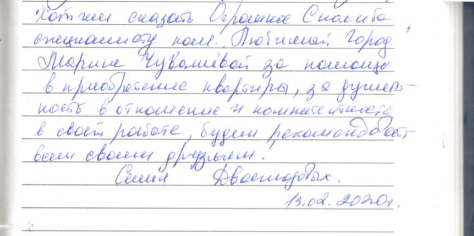 Хотим сказать Огромное Спасибо
специалисту комп. "Любимый Город"
Марине Чувашевой за помощь
в приобретение квартиры, за душев-
ность в отношение и компитентность
в своей работе, будем рекомендовать
всем своим друзьям!
Семья
13.02.2020г.